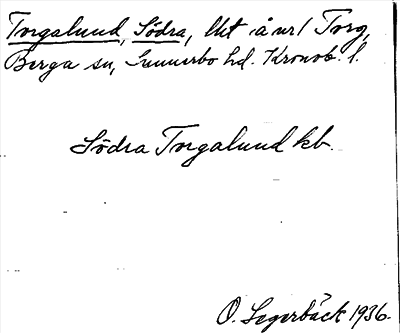 Torgalund, Södra, lht å nr 1 Torg,
Berga sn, Sunnerbo hd. Kronob. l.
Södra Torgalund kb.
O. Segerbäck 1936.